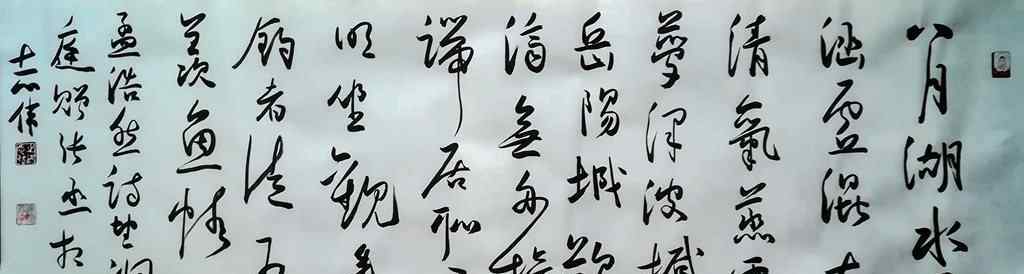 八月湖水
涵虚混太
清氣蒸雲
夢澤波撼
岳陽城欲
濟無舟楫
端居恥
明坐觀垂
釣者徒有
羡魚情
孟浩然詩望洞
庭贈張丞相
志偉